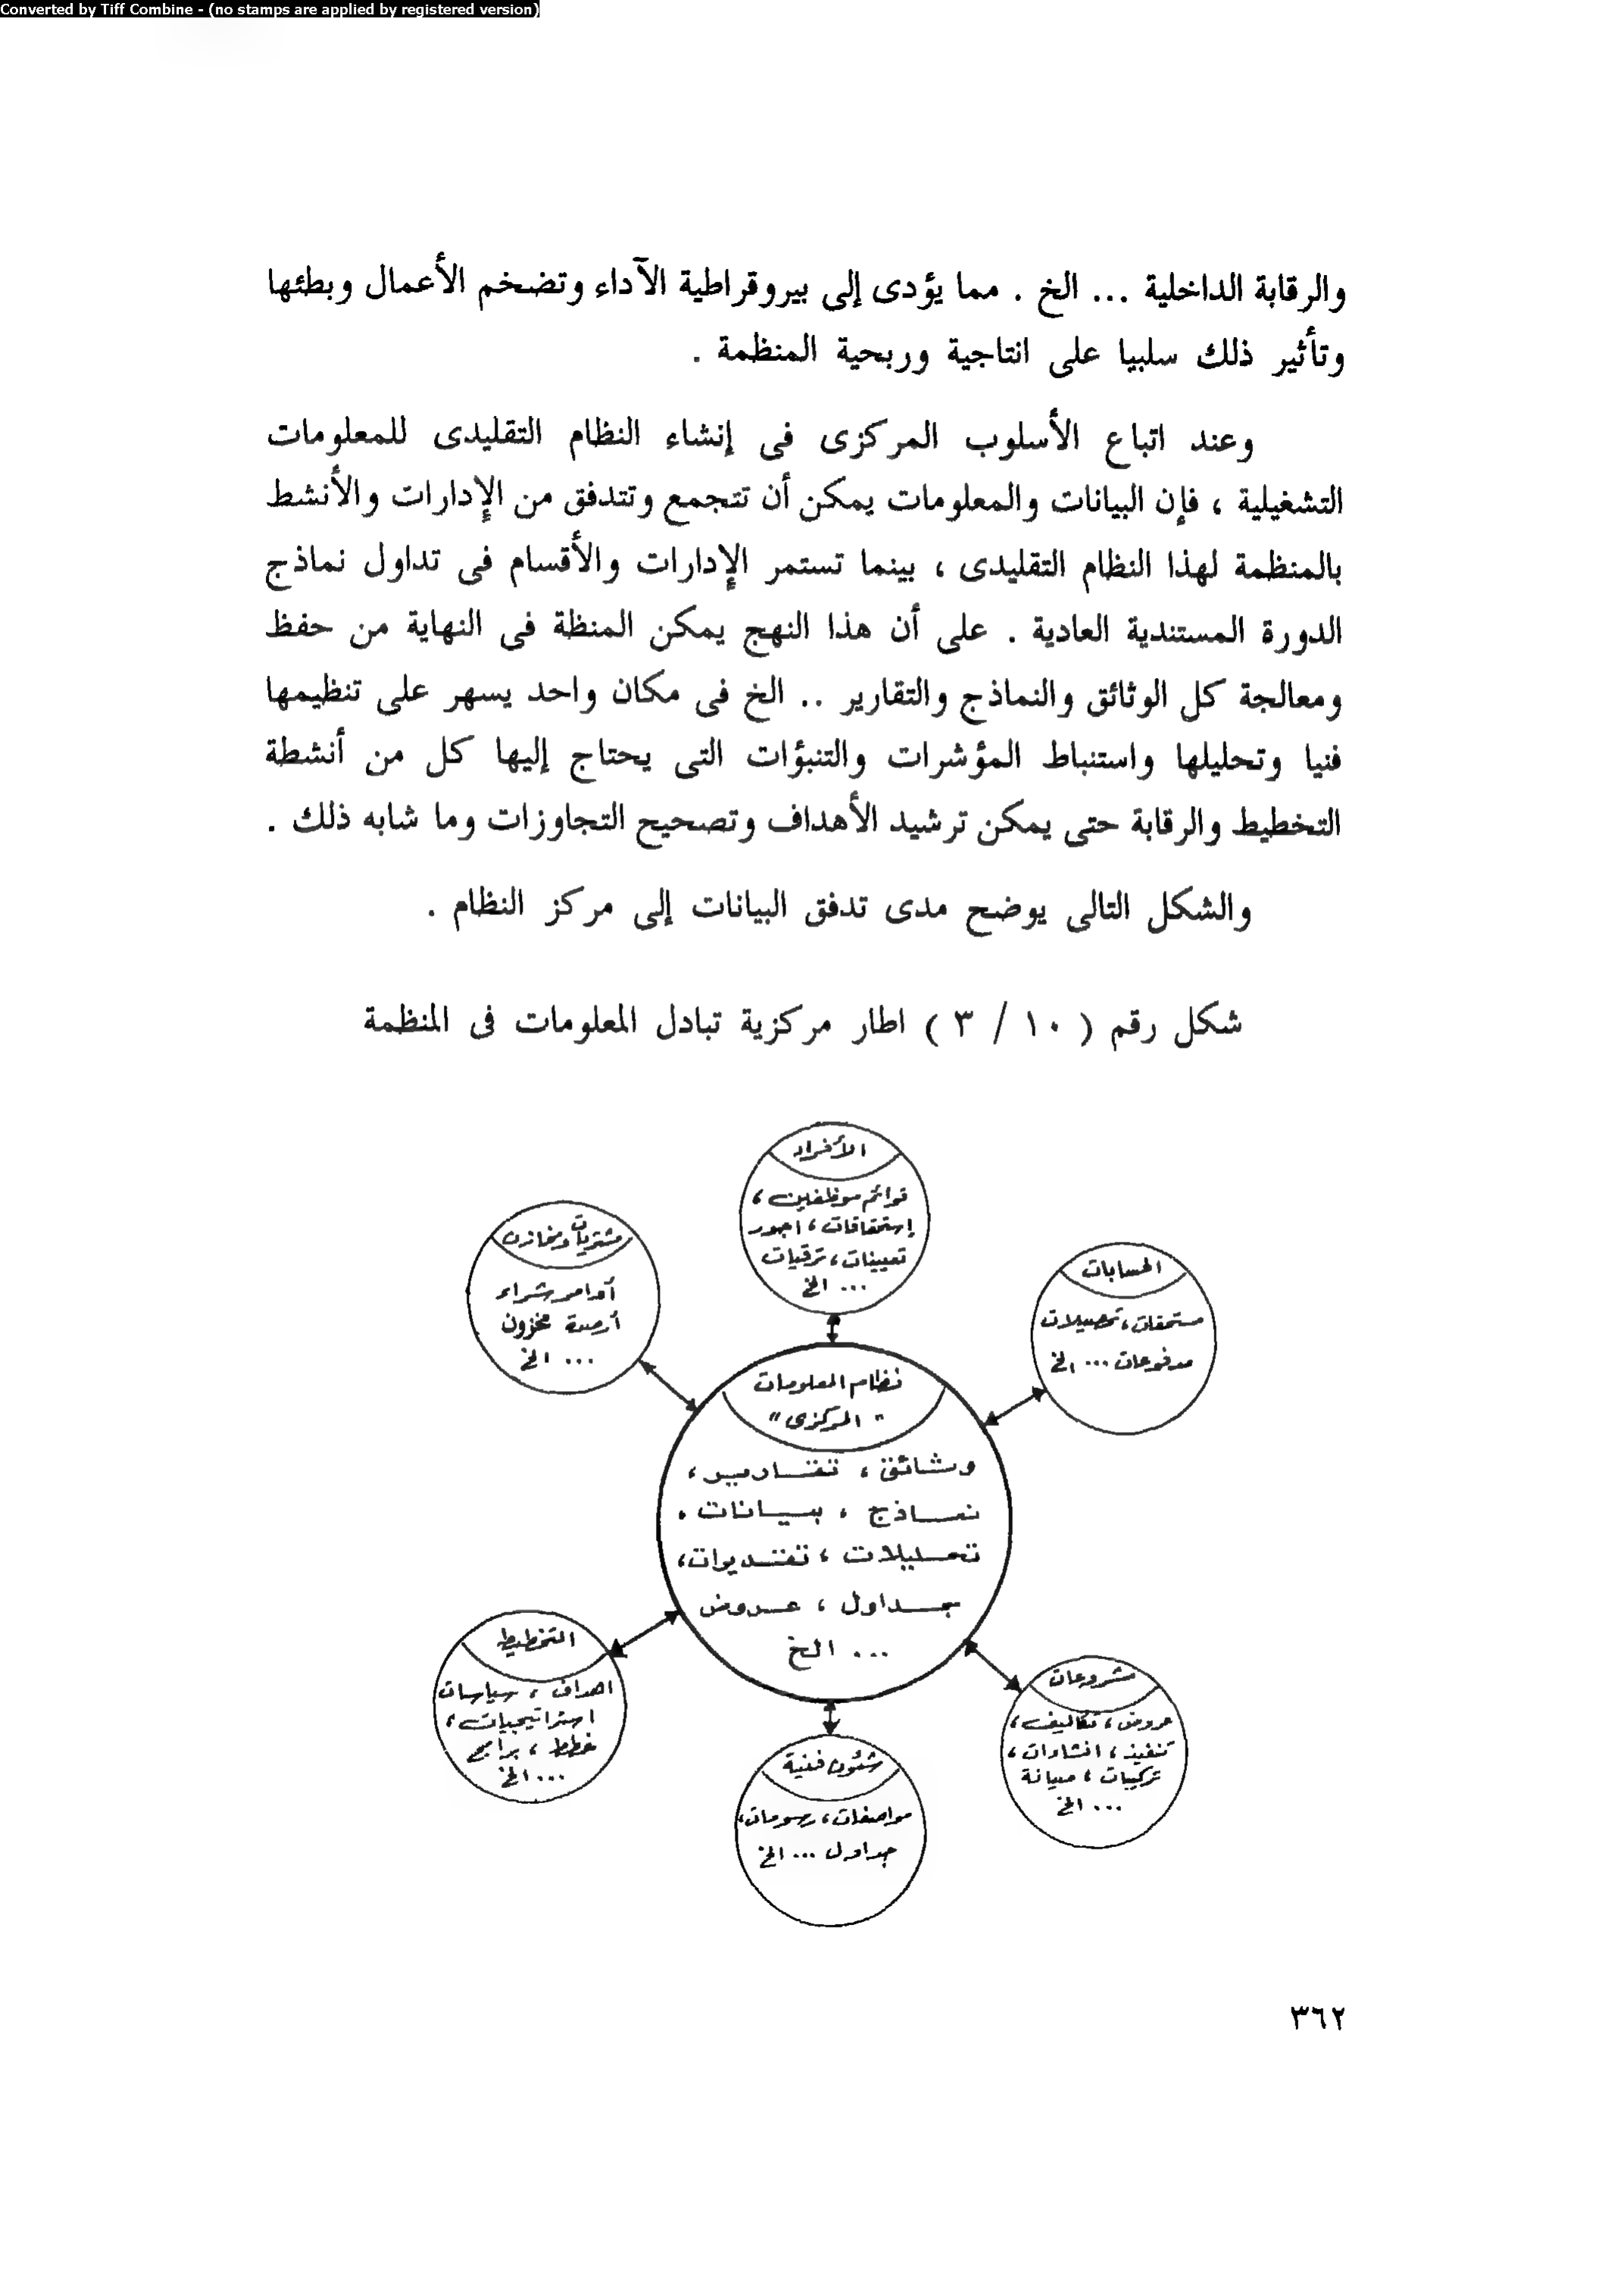 Converted by Tiff Combine - (no stamps are applied by registered version)
والرقابة الداخلية ... الخ . مما يؤدى إلى بيروقراطية الآداء وتضخم الأعمال وبطئها
وتأثير ذلك سلبيا على انتاجية وربحية المنظمة .
وعند اتباع الأسلوب المركزى فى إنشاء النظام التقليدى للمعلومات
التشغيلية ، فإن البيانات والمعلومات يمكن أن تتجمع وتتدفق من الإدارات والأنشط
بالمنظمة لهذا النظام التقليدى ، بينما تستمر الإدارات والأقسام فى تداول نماذج
الدورة المستندية العادية . على أن هذا النهج يمكن المنظة فى النهاية من حفظ
ومعالجة كل الوثائق والنماذج والتقارير .. الخ فى مكان واحد يسهر على تنظيمها
فنيا وتحليلها واستنباط المؤشرات والتنبؤات التى يحتاج إليها كل من أنشطة
التخطيط والرقابة حتى يمكن ترشيد الأهداف وتصحيح التجاوزات وما شابه ذلك .
والشكل التالى يوضح مدى تدفق البيانات إلى مركز النظام .
شكل رقم ( ١٠ / ٣ ) اطار مركزية تبادل المعلومات فى المنظمة
الأفراد
قوائم موظفين ،
إستحقاقات ، اجور
تعيينات ، ترقيات
... الخ
الحسابات
مستحقات ، تحصيلات
مدفوعات ... الخ
مشتريات ومخازن
أوامر شراء
أرصدة مخزون
... الخ
نظام المعلومات
" المركزى "
وثائق ، تقارير ،
نماذج ، بيانات .
تحليلات ، تقديرات ،
جداول ، عروض
... الخ
التخطيط
اهداف ، سياسات
استراتيجيات ،
خطط ، برامج
... الخ
مشروعات
عروض ، تكاليف ،
تنفيذ ، انشاءات ،
تركيبات ، صيانة
... الخ
شئون فنية
مواصفات ، رسومات ،
جداول ... الخ
٣٦٢